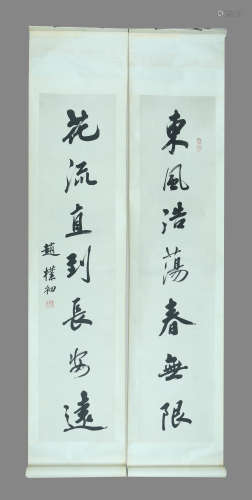 東風浩蕩春無限
花流直到長安遠
趙樸初